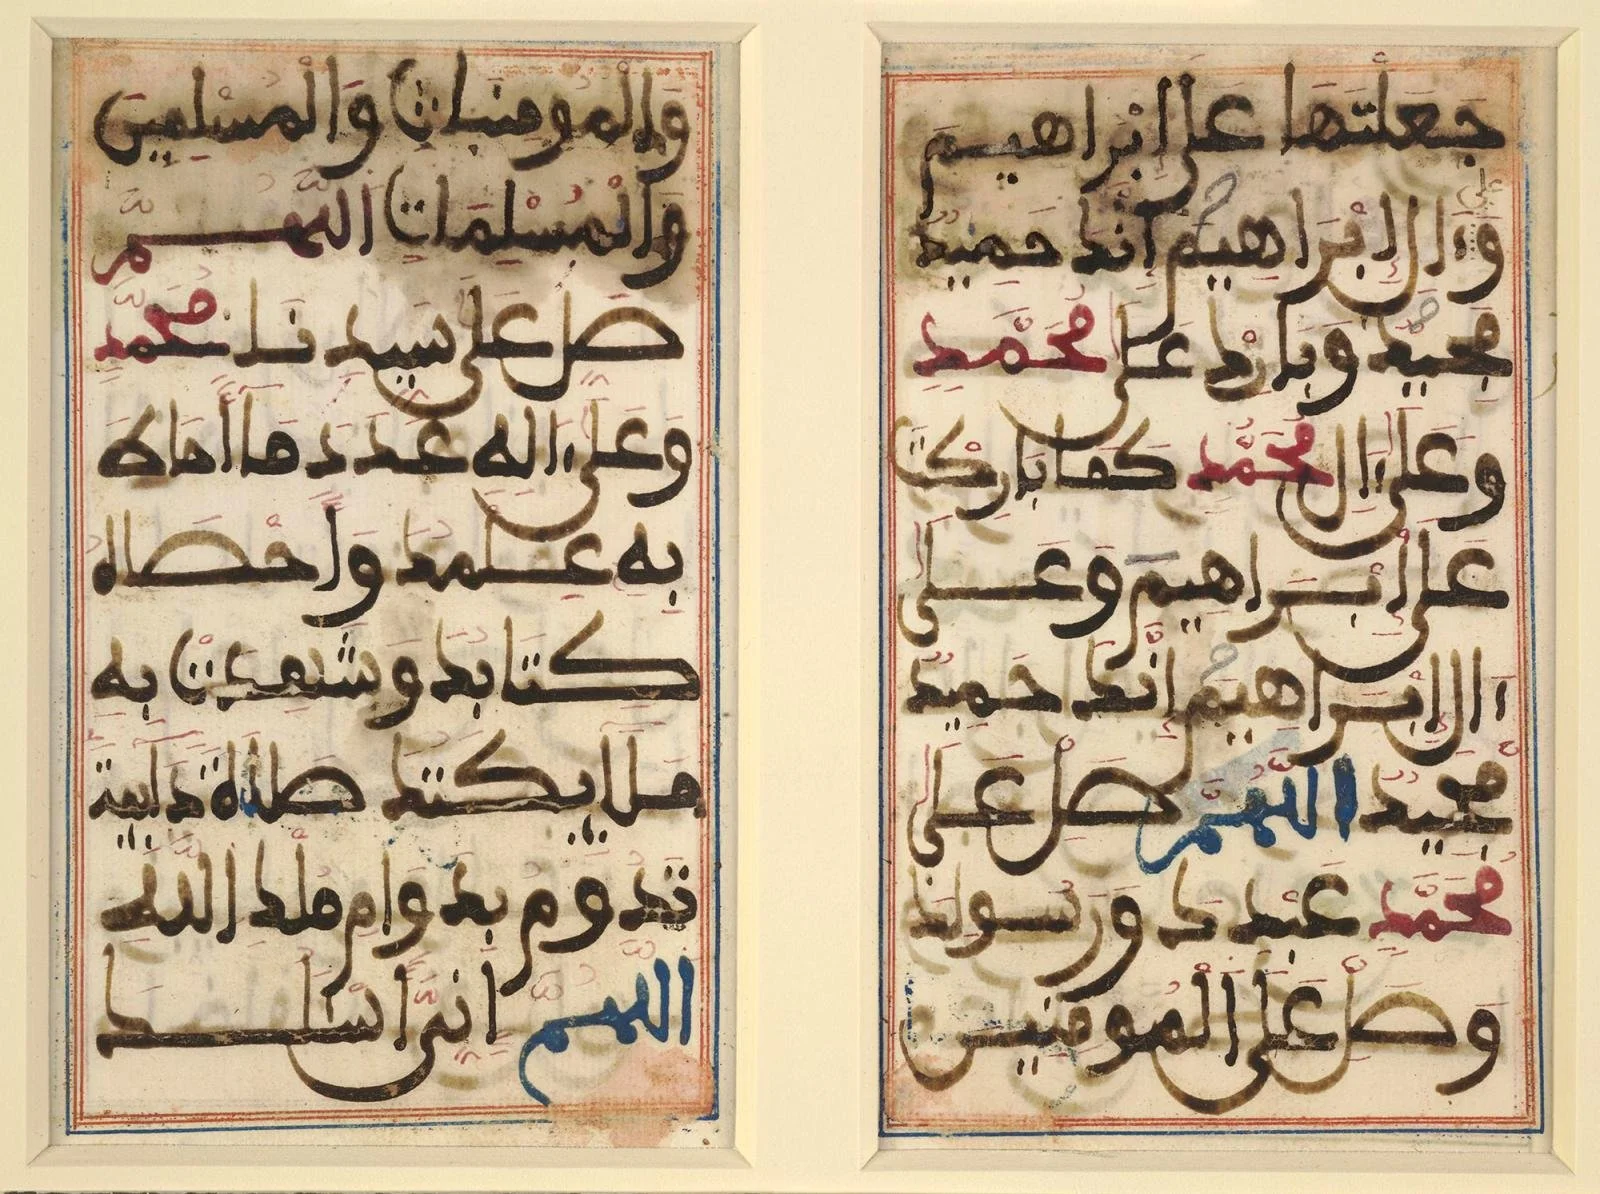 جعلتها على إبراهيم
وءال إبراهيم إنك حميد
مجيد وبارك على محمد
وعلى ءال محمد كما باركت
على إبراهيم وعلى
ءال إبراهيم إنك حميد
مجيد اللهم صل على
محمد عبدك ورسولك
وصل على المومنين
والمومنات والمسلمين
والمسلمات اللهم
صل على سيدنا محمد
وعلى ءاله عدد ما أحاط
به علمك وأحصاه
كتابك وشهدت به
ملايكتك صلاة دايمة
تدوم بدوام ملك الله
اللهم إني أسلك